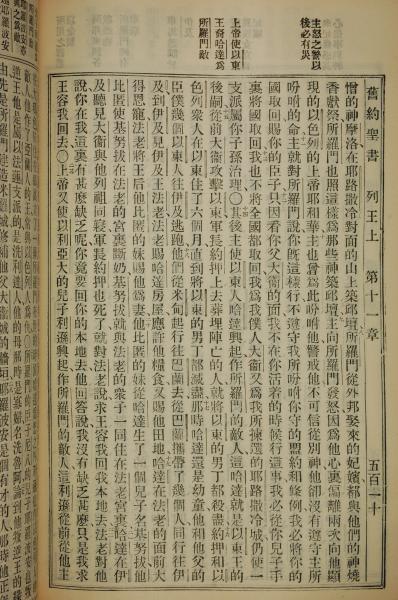 舊約聖書 列王上 第十一章 五百一十
主怒之警以
後必有災
上帝使以東
王裔哈達爲
所羅門敵
憎的神摩洛在耶路撒冷對面的山上築邱壇所羅門從外邦娶來的妃嬪都與他們的神燒
香獻祭所羅門也照這樣爲那些神築邱壇主向所羅門發怒因爲他心裏偏離兩次向他顯
現的以色列的上帝耶和華主也曾爲此吩咐他警戒他不可信從別神他卻沒有遵守主所
吩咐的命主就對所羅門說你旣這樣行不遵守我所吩咐你守的盟約和條例我必將你的
國取回賜你的臣子只因看你父大衞的面我不在你活着的時候行這事我必從你兒子手
裏將國取回我也不將全國都取回我爲我僕人大衞又爲我所揀選的耶路撒冷城仍使一
支派屬你子孫治理○其後主使以東人哈達興起作所羅門的敵人這哈達就是以東王的
後嗣從前大衞攻擊以東軍長約押上去葬埋陣亡的人就將以東的男丁都殺盡約押和以
色列衆人在以東住了六個月直到將以東的男丁都滅盡那時哈達還是幼童他和他父的
臣僕幾個以東人往伊及逃跑他們從米甸起行往巴蘭去從巴蘭攜帶了幾個人同行往伊
及到伊及見伊及王法老法老賜哈達房屋應許他糧食又賜他田地哈達在法老的面前大
得恩寵法老將王后他比匿的妹賜他爲妻他比匿的妹從哈達生了一個兒子名基努拔他
比匿使基努拔在法老的宮裏斷奶基努拔就與法老的衆子一同住在法老宮裏哈達在伊
及聽見大衞與他列祖同寢軍長約押也死了就對法老說求王容我回我本地去法老對他
說你在我這裏有甚麼缺乏呢你竟要回你的本地去他回答說我沒有缺乏甚麼只是我求
王容我回去○上帝又使以利亞大的兒子利遜興起作所羅門的敵人這利遜從前從他主